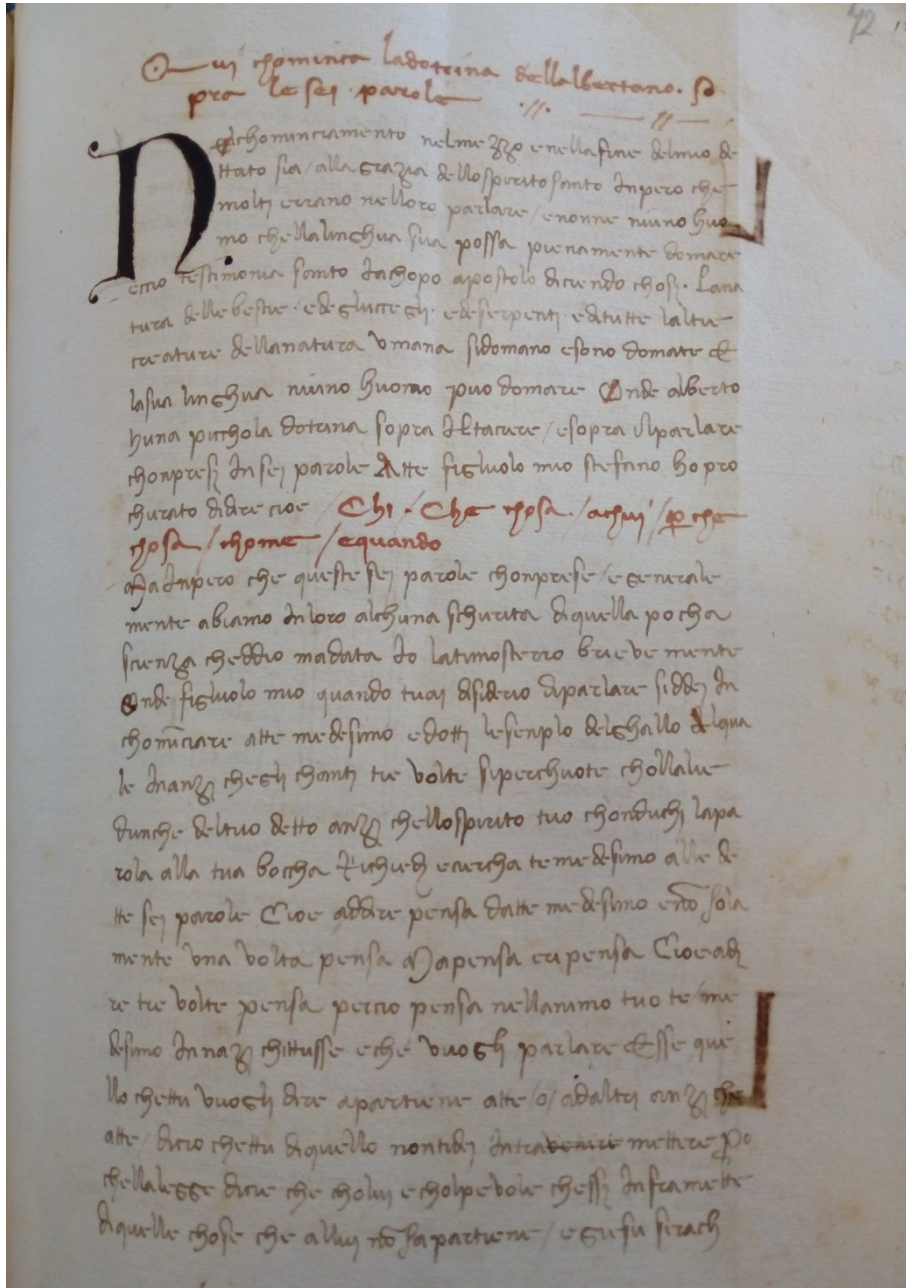 72
Qui chomincia ladotrina dellalbertano. so
pra le sei parole
Nelchominciamento nelmezzo e nella fine delmio de
ttato sia / alla grazia dello spirito santo Inpero che
molti errano nelloro parlare / enonne niuno huo
mo chella linghua sua possa pienamente domare
eccio testimonia santo Jachopo apostolo dicendo chosi. Lana
tura delle bestie. edegliuccegli. edeserpenti. editutte laltre
creature dellanatura umana sidomano esono domate E
lasua linghua niuno huomo puo domare Onde alberto
huna pichola dotrina sopra Iltacere / esopra ilparlare
chonpresi Insei parole Atte figluolo mio stefano ho pro
churato didire cioe / Chi. Che chosa. / achui / per che
chosa / chome / equando
Ma Inpero che queste sei parole chonprese / e generale
mente abiamo Inloro alchuna schurita diquella pocha
scienza cheddio madata Io latimosterro brievemente
Onde figluolo mio quando tuai disiderio diparlare siddei In
chominciare atte medesimo edotti lesenplo delghallo Alqua
le Inanzi chegli chanti tre volte siperchuote chollalie
dunche deltuo detto anzi chello spirito tuo chonduchi lapa
rola alla tua boccha Richiedi ecercha temedesimo alle de
tte sei parole Cioe addire pensa datte medesimo eno sola
mente una volta pensa Mapensa eripensa Cioeadi
re tre volte pensa percio pensa nellanimo tuo te / me
desimo Innazi chittusse eche vuogli parlare Esse que
llo chettu vuogli dire apartiene atte / o / adaltri anzi che
atte / dicio chettu diquello nontidei Intravenire mettere Po
chellalegge dicie che cholui echolpevole chessi Inframette
diquelle chose che allui no sapartiene / e giesu sirach